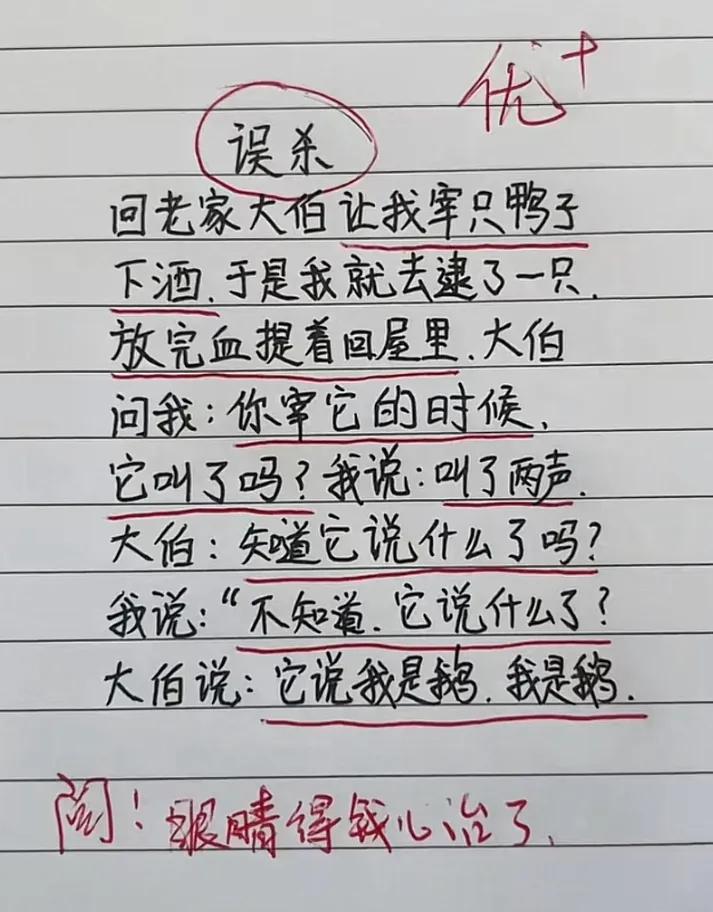 优+
误杀
回老家大伯让我宰只鸭子
下酒.于是我就去逮了一只.
放完血提着回屋里.大伯
问我:你宰它的时候.
它叫了吗?我说:叫了两声.
大伯:知道它说什么了吗?
我说:“不知道.它说什么了?
大伯说:它说我是鹅.我是鹅.
阅!眼睛得钱心治了.